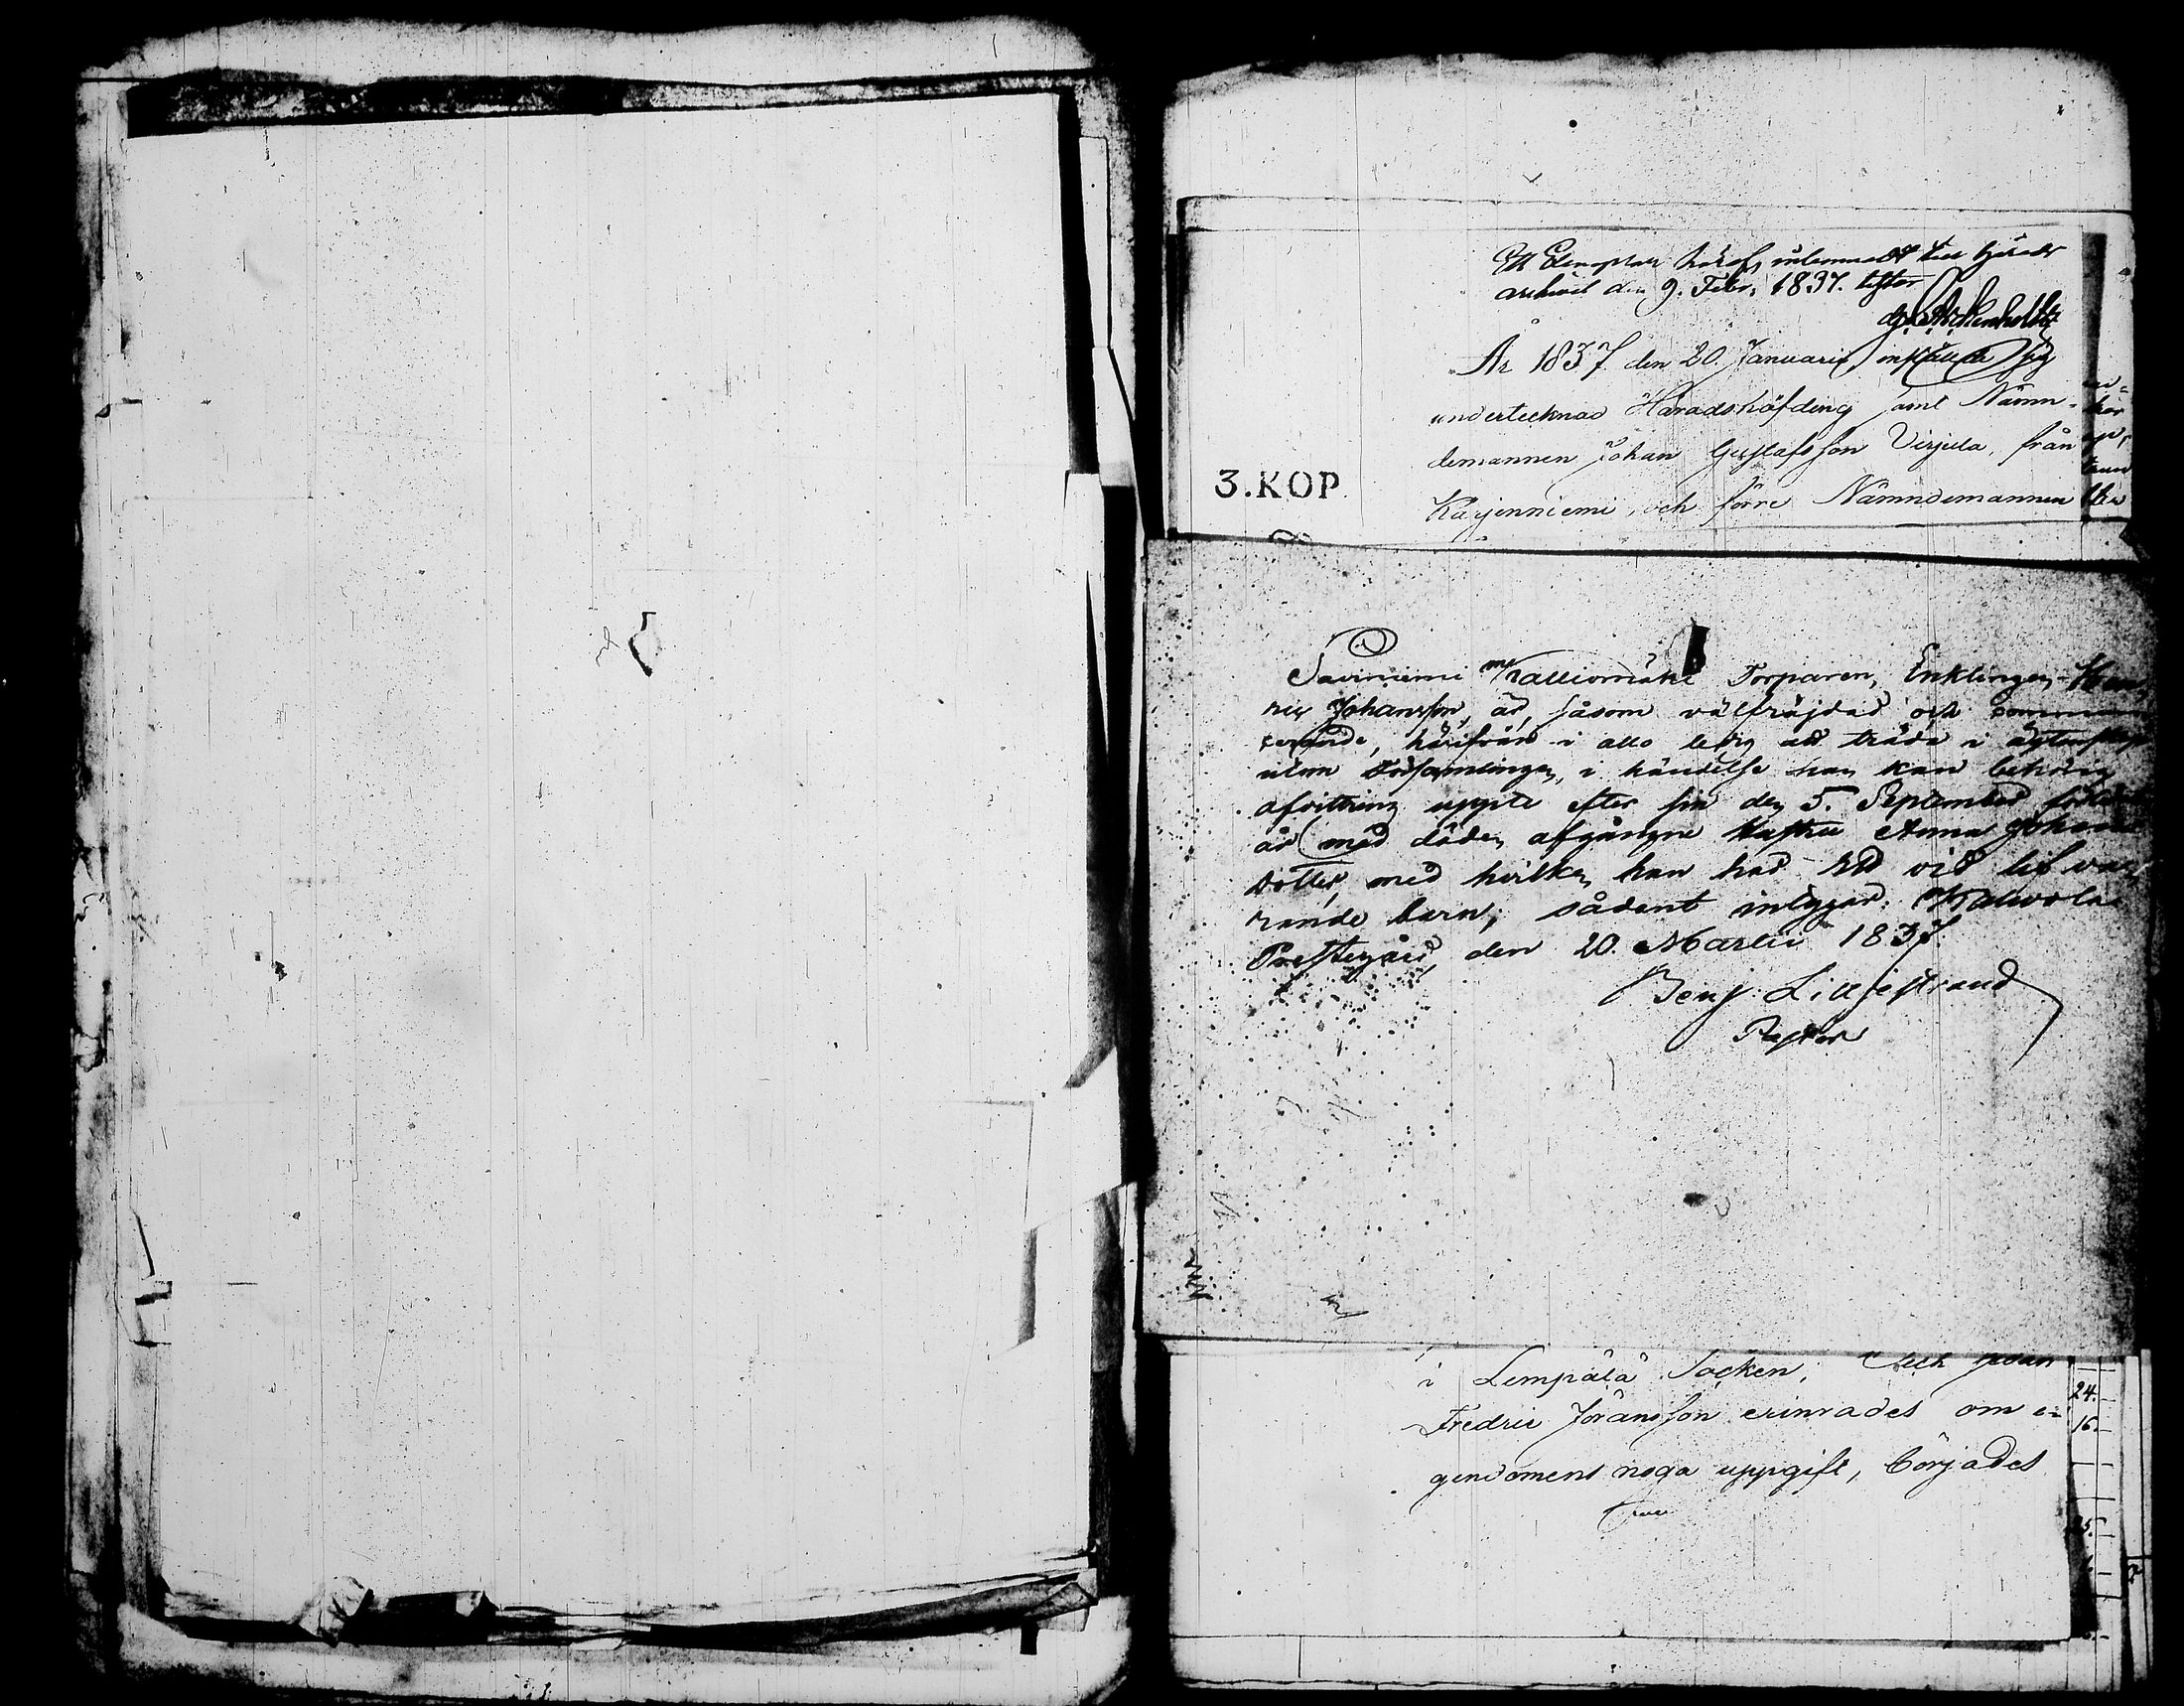 Ett Exemplar häraf inlemnadt till Härads
archivet den 9. Febr. 1837. testor
Arckenholtz
År 1837 den 20. Januarii instälde sig
undertecknad Häradshöfding samt Nämn-
demannen Johan Gustafsson Virjula, från
3.KOP
Karjenniemi, och förre Nämndemannen
Saviniemi Kalliomäki Torparen, Enklingen Hen
ric Johansson, är, såsom välfräjdad och commun
cerande, härifrån i allo ledig att träda i ägtenskap
utom Församlingen, i händelse han kan behörig
afvittring uppte efter sin den 5. September förledit
år med döden afgångne Hustru Anna Johans
dotter, med hvilken han had vid lif va
rande barn; sådant intygar. Kalvola
Prestegård, den 20. Martii 1837.
Benj: Lilljestrand
Pastor
i Lempälä Socken; Och sedan
24.
Fredric Jöransson erinrades om e=
16.
gendomens noga uppgift, börjades
25.